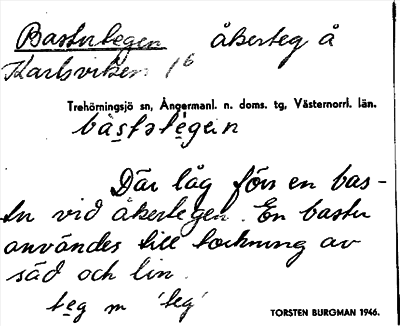 Bastutegen åkerteg å
Karlsviken 1⁶
Trehörningsjö sn, Ångermanl. n. doms. tg, Västernorrl. län.
bastotegen
Där låg förr en bas-
tu vid åkertegen. En bastu
användes till torkning av
säd och lin.
teg m 'teg'
TORSTEN BURGMAN 1946.